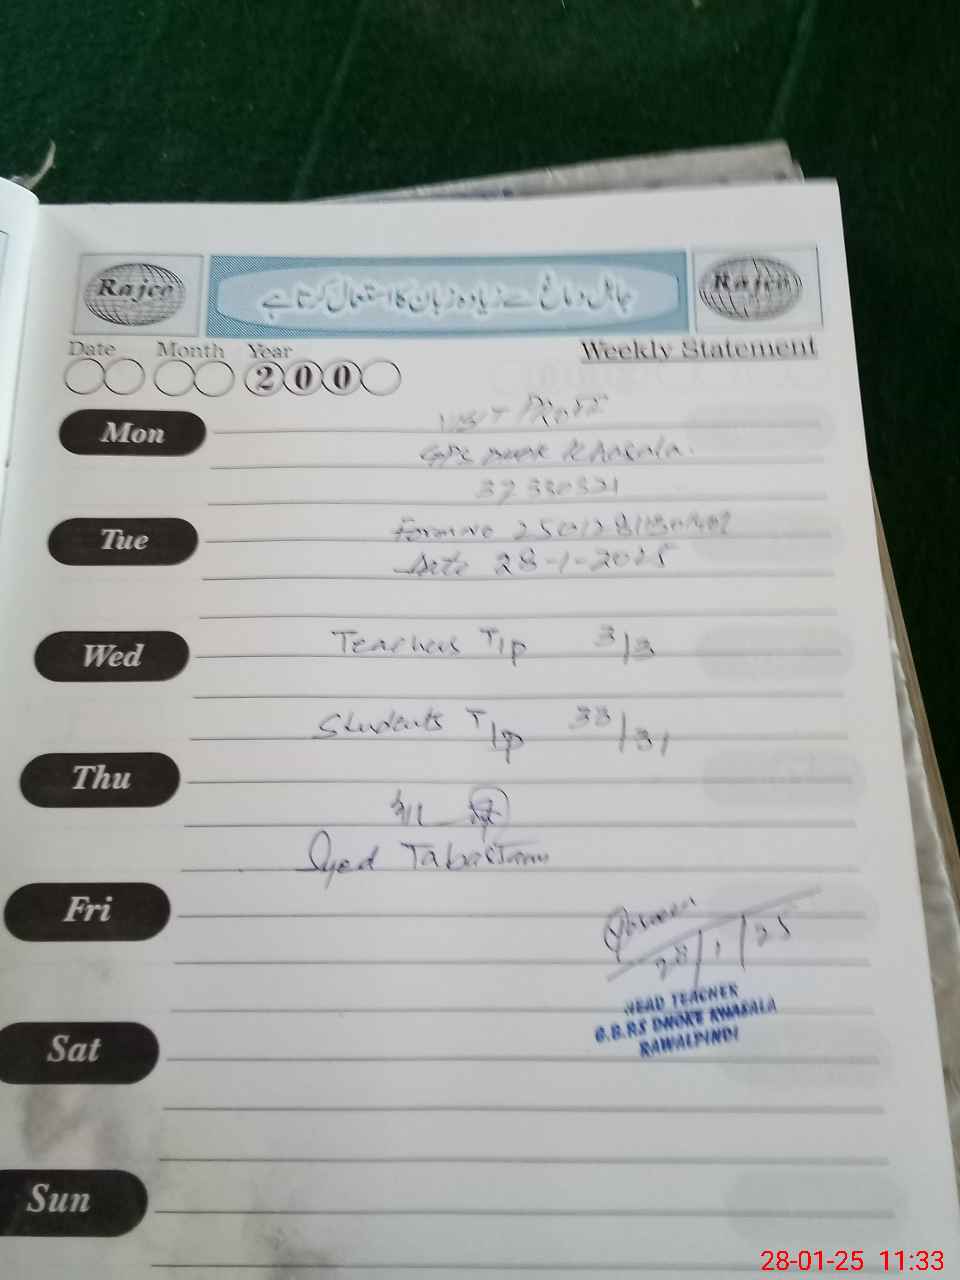 Rajco
جاہل دماغ سے زیادہ زبان کا استعمال کرتا ہے
Rajco
Date Month Year
200
Weekly Statement
Mon
Visit Proof
GPS Dhok Khasala.
37330321
Tue
Form no
Date 28-1-2025
Wed
Teachers T/P 3/3
Students T/P 33/31
Thu
Syed
Fri
28/1/25
HEAD TEACHER
G.B.P.S DHOKE KHASALA
RAWALPINDI
Sat
Sun
28-01-25 11:33